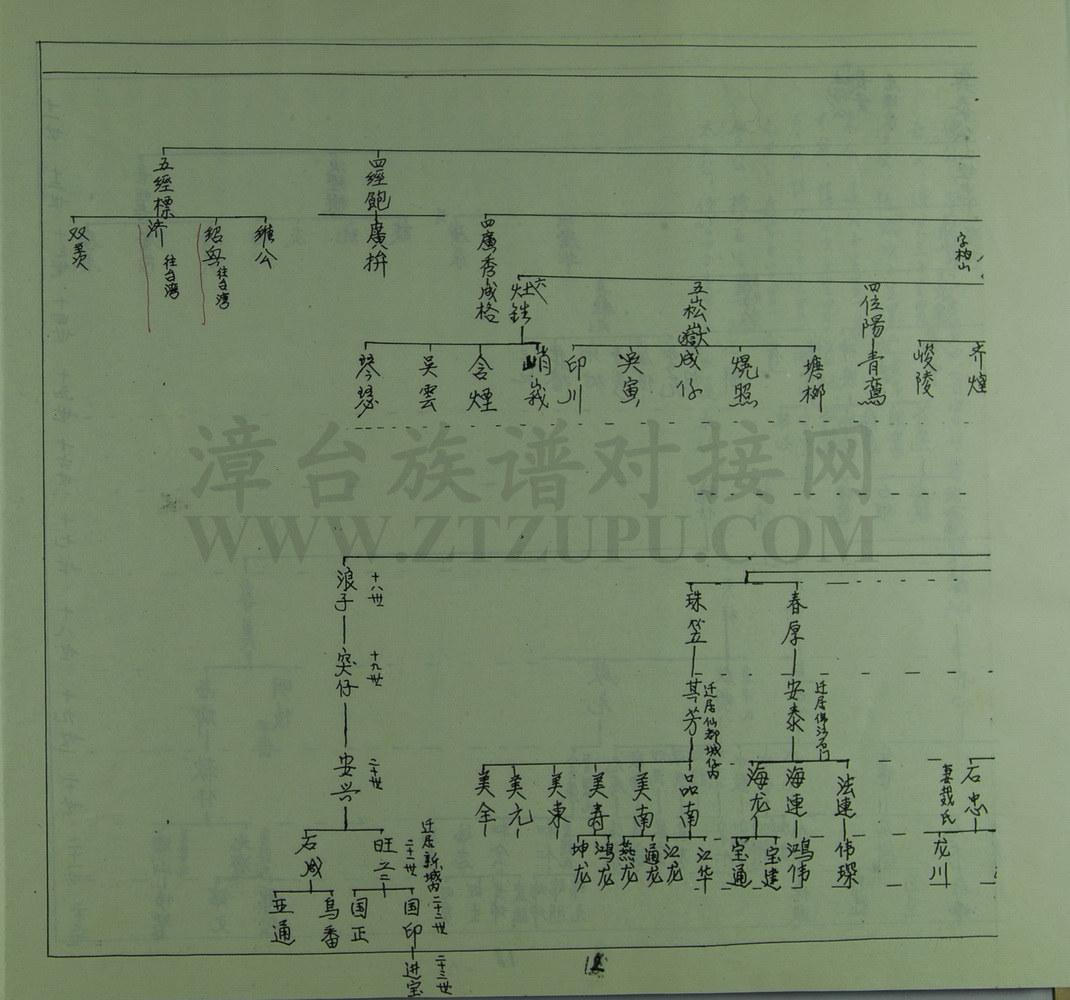 五經標
四經鮑
双羨
济
往台湾
紹興
往台湾
維公
廣拚
四廣秀成格
字柏山
六
灶鉎
五崧嶽成仔
四位陽
青鸞
琴瑟
吴雲
含煙
峭峩
印川
寅
焜照
塘柳
峻陵
齐煌
漳台族谱对接网
WWW.ZTZUPU.COM
浪子
十八世
突仔
十九世
安兴
二十世
石成
旺兰
二十一世
迁居新城内
亚通
鸟番
国正
国印
二十二世
进宝
二十三世
珠笠
春厚
其芳
迁居仙都城仔内
安泰
美全
美元
美東
美寿
美南
品南
海龙
海連
法連
妻魏氏
石忠
坤龙
鸿龙
燕龙
通龙
江龙
江华
宝通
宝建
鸿伟
伟琛
龙川